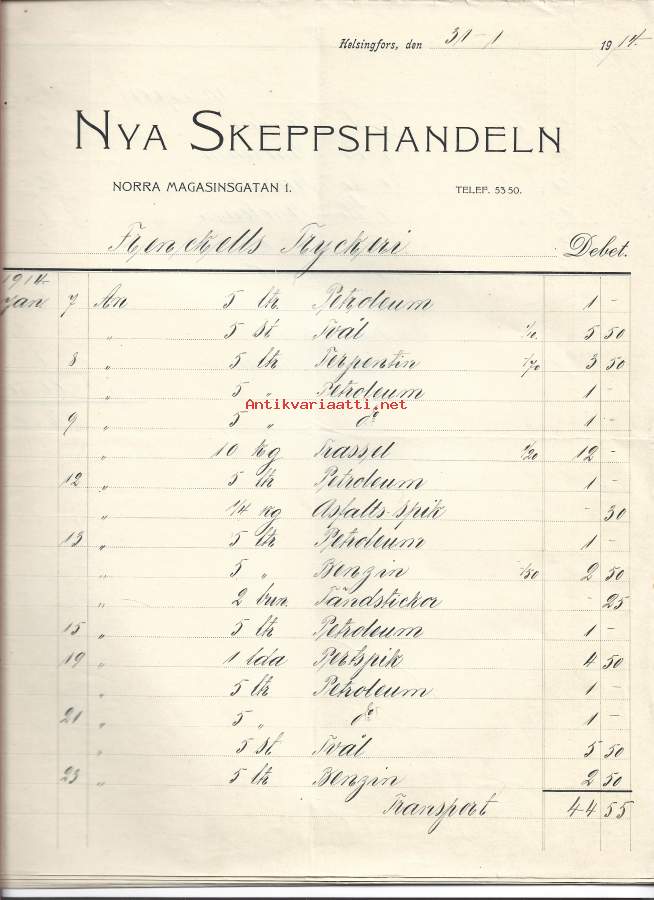 Helsingfors, den 31-1 1914.
NYA SKEPPSHANDELN
NORRA MAGASINSGATAN 1. TELEF. 53 50.
Frenckells Tryckeri Debet.
1914
Jan. 7 An 5 ltr. Petroleum 1 -
" 5 st Tvål 5 50
8 " 5 ltr Terpentin -/70 3 50
" 5 " Petroleum 1 -
Antikvariaatti.net
9 " 5 " d:o 1 -
" 10 kg Trassel 1/20 12 -
12 " 5 ltr Petroleum 1 -
" 1/4 kg Asfalts-spik - 30
13 " 5 ltr Petroleum 1 -
" 5 " Benzin -/50 2 50
" 2 bun. Tändstickor - 25
15 " 5 ltr Petroleum 1 -
19 " 1 lda 4 50
" 5 ltr Petroleum 1 -
21 " 5 " d:o 1 -
" 5 st Tvål 5 50
23 " 5 ltr Benzin 2 50
Transport 44 55